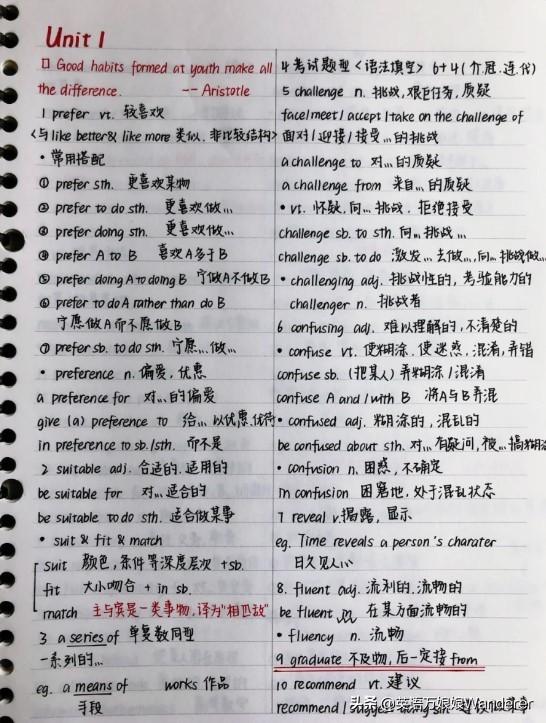 Unit 1
□ Good habits formed at youth make all
the difference. -- Aristotle
1 prefer vt. 较喜欢
<与like better& like more 类似.非比较结构>
• 常用搭配
① prefer sth. 更喜欢某物
② prefer to do sth. 更喜欢做...
③ prefer doing sth. 更喜欢做...
④ prefer A to B 喜欢A多于B
⑤ prefer doing A to doing B 宁做A不做B
⑥ prefer to do A rather than do B
宁愿做A而不愿做B
⑦ prefer sb. to do sth. 宁愿...做...
• preference n. 偏爱,优惠
a preference for 对...的偏爱
give (a) preference to 给...以优惠.优待
in preference to sb./sth. 而不是
2 suitable adj. 合适的.适用的
be suitable for 对...适合的
be suitable to do sth. 适合做某事
• suit & fit & match
suit 颜色,条件等深度层次 +sb.
fit 大小吻合 + in sb.
match 主与宾是一类事物,译为"相匹敌"
3 a series of 单复数同型
一系列的...
eg. a means of works 作品
手段
4 考试题型 <语法填空> 6+4(介.冠.连.代)
5 challenge n. 挑战,艰巨任务,质疑
face/meet/accept/take on the challenge of
面对/迎接/接受...的挑战
a challenge to 对...的质疑
a challenge from 来自...的质疑
• vt. 怀疑,向...挑战.拒绝接受
challenge sb. to sth. 向...挑战...
challenge sb. to do 激发...去做...,向...挑战做...
• challenging adj. 挑战性的,考验能力的
challenger n. 挑战者
6 confusing adj. 难以理解的,不清楚的
• confuse vt. 使糊涂.使迷惑,混淆,弄错
confuse sb. (把某人)弄糊涂/混淆
confuse A and/with B 将A与B弄混
• confused adj. 糊涂的,混乱的
be confused about sth. 对...有疑问,被...搞糊涂
• confusion n. 困惑,不确定
in confusion 困窘地,处于混乱状态
7 reveal v.揭露,显示
eg. Time reveals a person's charater
日久见人心
8. fluent adj. 流利的.流畅的
be fluent in 在某方面流畅的
• fluency n. 流畅
9 graduate 不及物,后一定接from
10 recommend vt. 建议
recommend/suggest doing sth.
头条 @英语万娘娘Wanderer